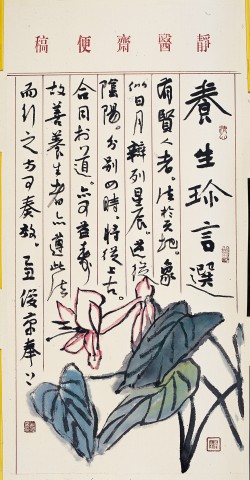 靜醫齋便稿
養生珍言選
有賢人者。法於天地。象
似日月辨列星辰。逆從
陰陽。分別四時。將從上古。
合同於道。亦可益壽
故善養生者亦遵此法
而行之方可奏效。乙丑俊京奉上